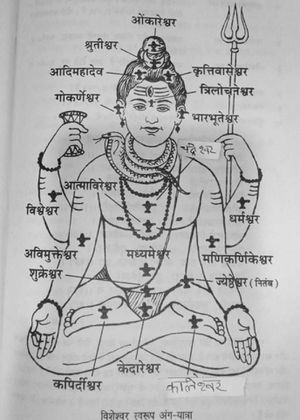 ओंकारेश्वर
श्रुतीश्वर
आदिमहादेव
कृत्तिवासेश्वर
गोकर्णेश्वर
त्रिलोचनेश्वर
भारभूतेश्वर
चंद्रेश्वर
आत्माविरेश्वर
विश्वेश्वर
धर्मेश्वर
अविमुक्तेश्वर
मध्यमेश्वर
मणिकर्णिकेश्वर
शुक्रेश्वर
ज्येष्ठेश्वर (नितंब)
केदारेश्वर
कपिर्दीश्वर
कालेश्वर
विशेश्वर स्वरूप अंग-यात्रा